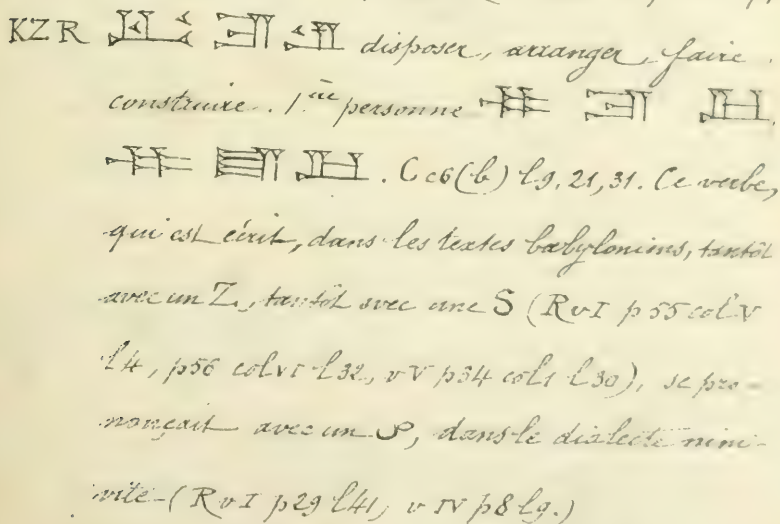 KZR disposer, arranger, faire
construire. 1ère personne
. Cc6(b) l9, 21, 31. Ce verbe,
qui est écrit, dans les textes babyloniens, tantôt
avec un Z, tantôt avec une S (RvI p55 col V
l4, p56 colVI l32, vV p34 col1 l30), se pro-
nonçait avec un S, dans le dialecte nini-
vite (RvI p29 l41, vIV p8 l9.)